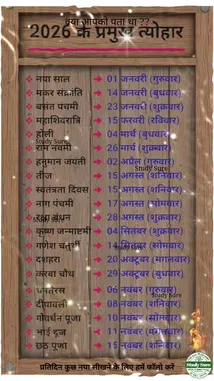 क्या आपको पता था ??
2026 के प्रमुख त्योहार
नया साल → 01 जनवरी (गुरुवार)
मकर संक्रांति → 14 जनवरी (बुधवार)
बसंत पंचमी → 23 जनवरी (शुक्रवार)
महाशिवरात्रि → 15 फरवरी (रविवार)
होली → 04 मार्च (बुधवार)
Study Sure
राम नवमी → 26 मार्च (शुक्रवार)
हनुमान जयंती → 02 अप्रैल (गुरुवार)
Study Sure
तीज → 15 अगस्त (शनिवार)
स्वतंत्रता दिवस → 15 अगस्त (शनिवार)
नाग पंचमी → 17 अगस्त (सोमवार)
रक्षा बंधन → 28 अगस्त (शुक्रवार)
Study Sure
कृष्ण जन्माष्टमी → 04 सितंबर (शुक्रवार)
गणेश चतुर्थी → 14 सितंबर (सोमवार)
Study Sure
दशहरा → 20 अक्टूबर (मंगलवार)
करवा चौथ → 29 अक्टूबर (बुधवार)
धनतेरस → 06 नवंबर (शुक्रवार)
Study Sure
दीपावली → 08 नवंबर (शनिवार)
गोवर्धन पूजा → 10 नवंबर (सोमवार)
भाई दूज → 11 नवंबर (मंगलवार)
छठ पूजा → 15 नवंबर (शनिवार)
प्रतिदिन कुछ नया सीखने के लिए हमें फॉलो करें
Study Sure